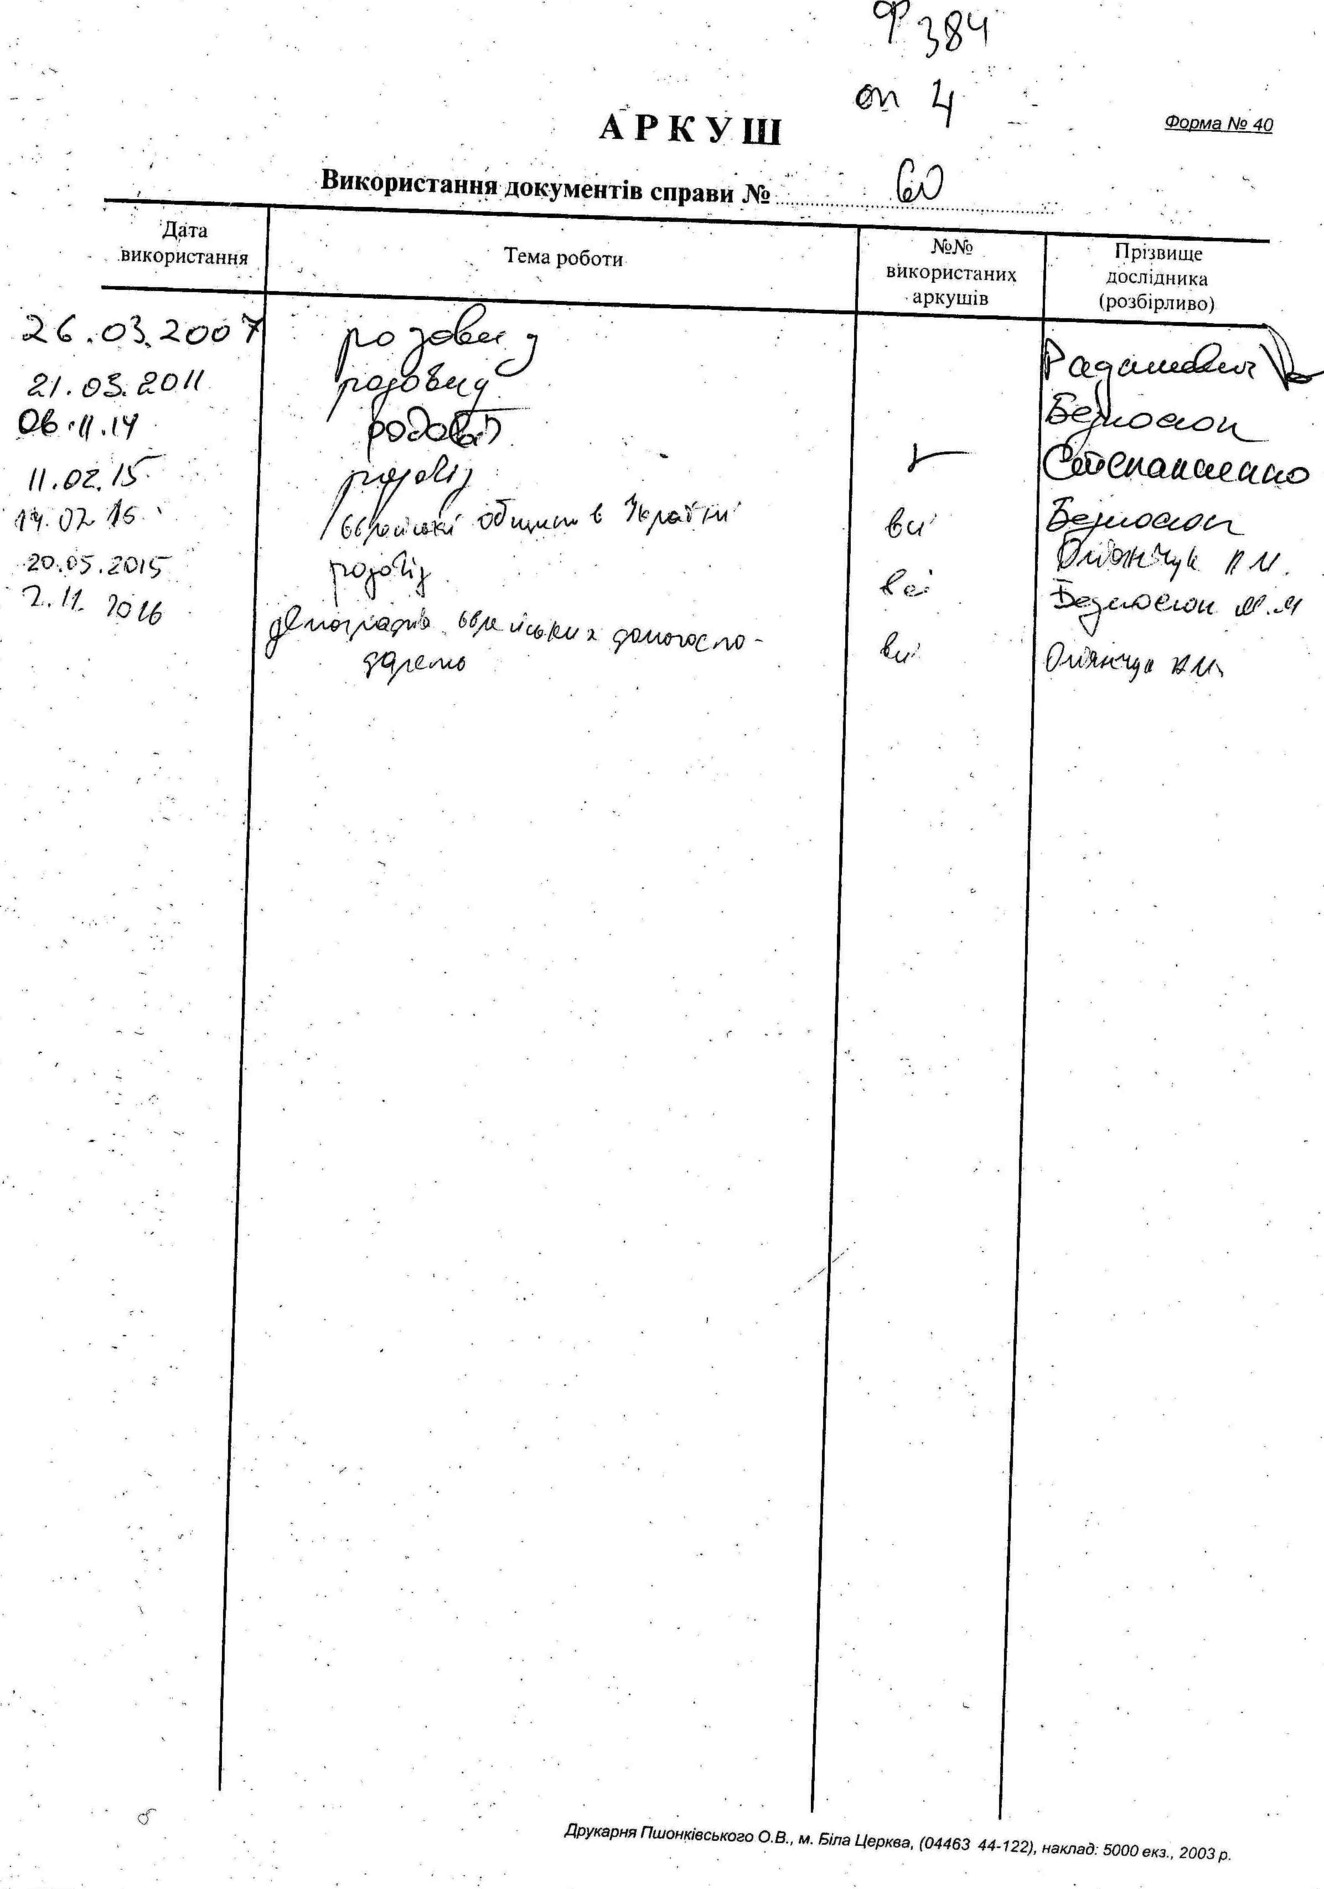 Ф 384
оп 4
Форма № 40
АРКУШ
Використання документів справи № 60
Дата використання
Тема роботи
№№ використаних аркушів
Прізвище дослідника (розбірливо)
26.03.2007 родовид
21.03.2011 родовид Безносюк
06.11.14 родовід Степаненко
11.02.15 родовід Безносюк
17.02.15 єврейські общини в Україні всі
20.05.2015 родовід всі Безносюк М.М
2.11.2016 демографія єврейських домогоспо-
дарств всі
Друкарня Пшонківського О.В., м. Біла Церква, (04463 44-122), наклад: 5000 екз., 2003 р.